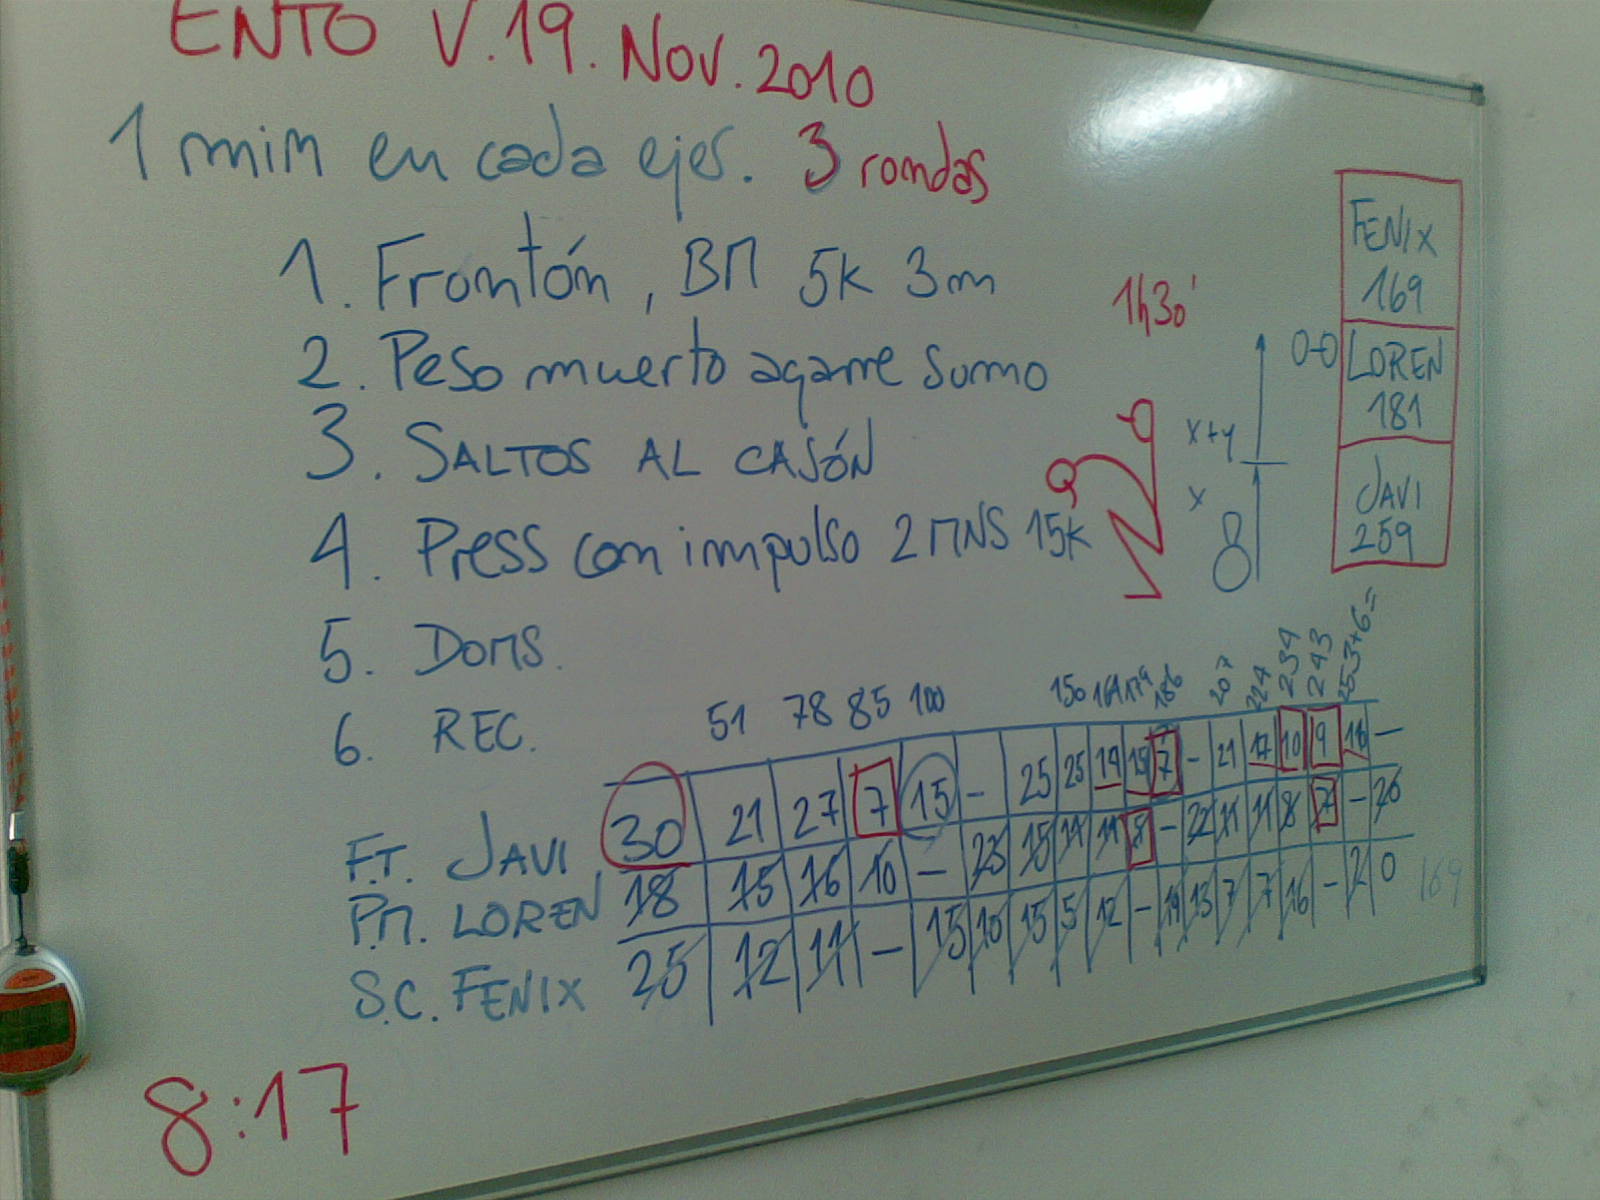 ENTO V.19.Nov.2010
1 min en cada ejer. 3 rondas
1. Frontón, BM 5k 3m
2. Peso muerto agarre sumo
3. SALTOS AL CAJÓN
4. Press con impulso 2 MNS 15k
5. DOMS.
6. REC.
1h30'
x+y
x
0-0
FENIX
169
LOREN
181
JAVI
259
51 78 85 100 150 164 179 186 207 224 234 243 253+6=
F.T. JAVI 30 21 27 7 15 - 25 25 14 15 7 - 21 17 10 9 -
P.M. LOREN 18 15 16 10 - 23 15 14 11 8 - 22 11 11 8 7 - 20
S.C. FENIX 25 12 11 - 15 10 15 5 12 - 19 13 7 7 16 - 2 0 169
8:17